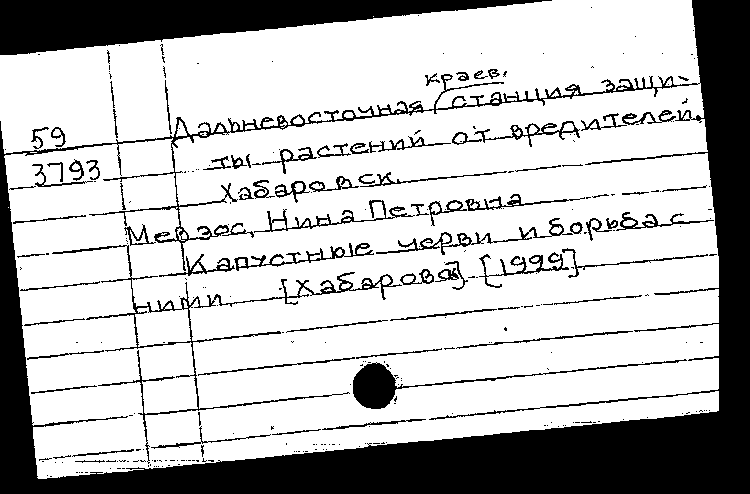 краев.
59 Дальневосточная станция защи-
3793 ты растений от вредителей.
Хабаровск.
Мевзос, Нина Петровна
Капустные черви и борьба с
ними. [Хабаровск] [1999].